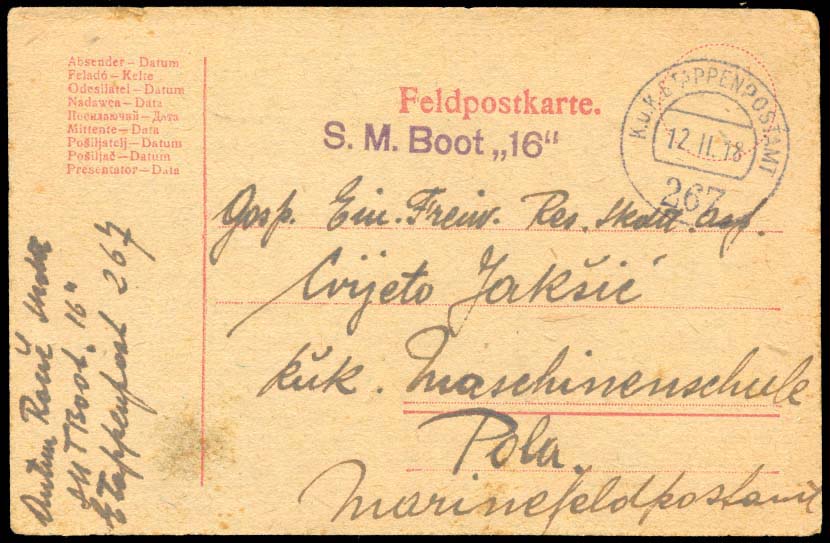 Absender – Datum
Feladó – Kelte
Odesílatel – Datum
Nadawca – Data
Посилаючий – Дата
Mittente – Data
Pošiljatelj – Datum
Pošiljač – Datum
Presentator – Data
Feldpostkarte.
S. M. Boot „16“
K.U.K. ETAPPENPOSTAMT
12. II. 18
267
Gosp. Ein. Freiw. Res.
Cvijeto Jakšić
kuk. Maschinenschule
Pola.
Marinefeldpostamt
Boot. 16"
Etappenpost 267